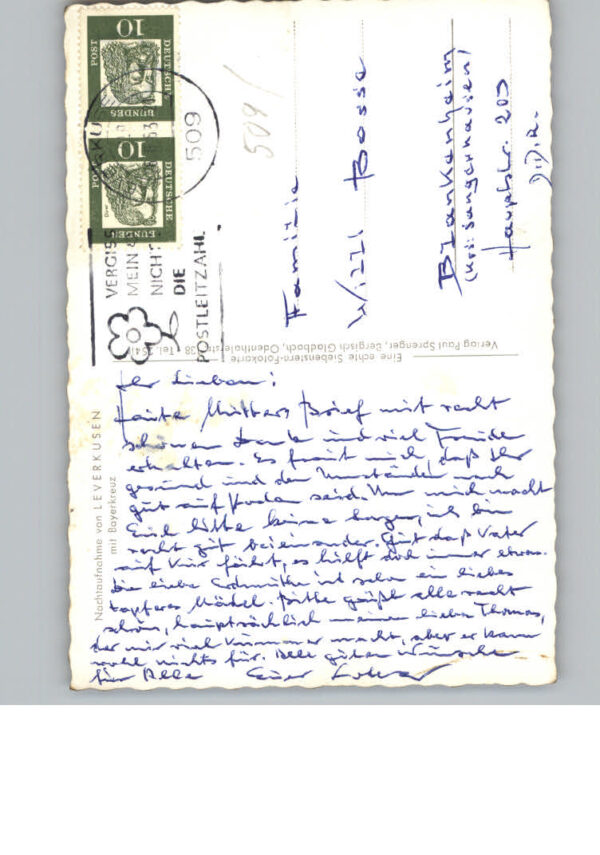 10
POST
DEUTSCHE
BUNDES
10
POST
DEUTSCHE
BUNDES
509
63
VERGISS
MEIN
NICHT
DIE
POSTLEITZAHL
509/
Familie
Willi Bosse
Blankenheim
(Krs. Sangerhausen)
Hauptstr. 203
D.D.R.
Verlag Paul Sprenger, Bergisch Gladbach, Odenthalerstr. 38 · Tel.
Eine echte Siebenstern-Fotokarte
Nachtaufnahme von LEVERKUSEN
mit Bayerkreuz
Ihr Lieben!
Heute Mutters Brief mit recht
schönem Dank und viel Freude
erhalten. Es freut mich, daß Ihr
gesund und den Umständen nach
gut auf seid. Um mich macht
Euch bitte keine Sorgen, ich bin
recht gut beieinander. Gut daß Vater
auf Kur fährt, es hilft doch immer etwas.
Die liebe ist sehr ein liebes
tapferes Mädel. Bitte grüßt alle recht
schön, hauptsächlich meinen lieben Thomas,
der mir viel Kummer macht, aber er kann
wohl nichts für. Alle guten Wünsche
für Alle Euer